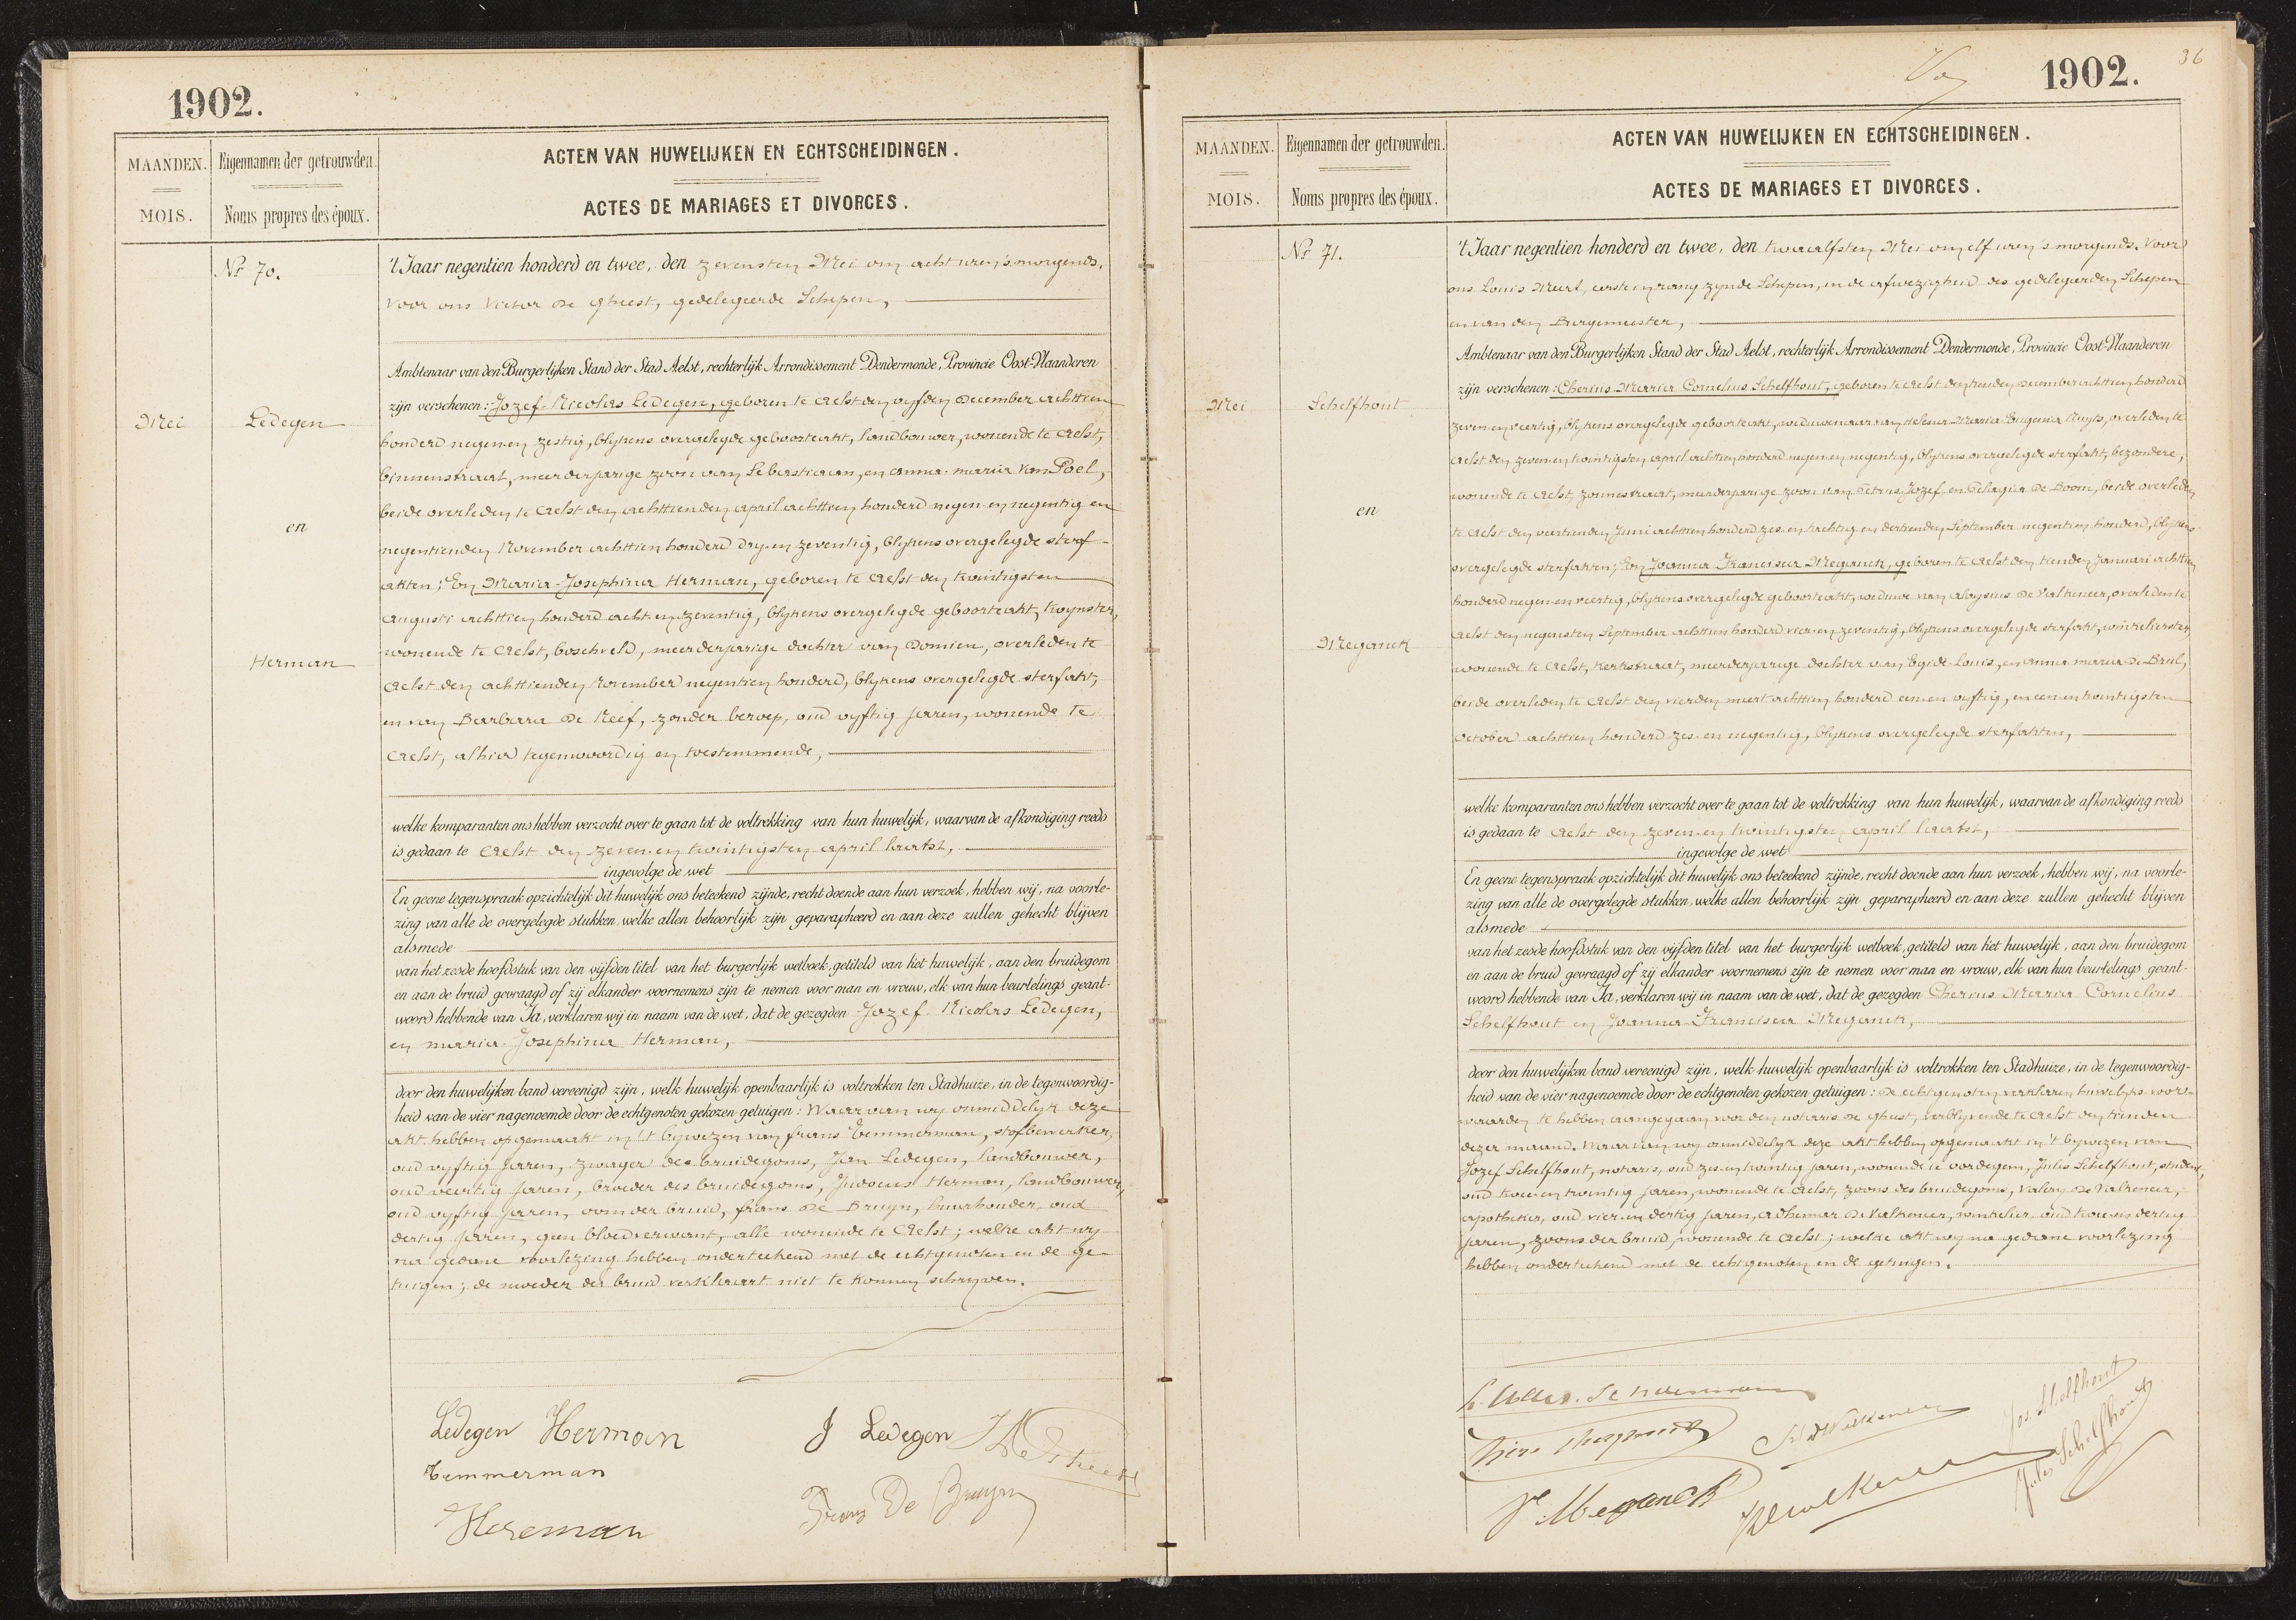 1902.
MAANDEN.
MOIS.
Eigennamen der getrouwden.
Noms propres des époux.
ACTEN VAN HUWELIJKEN EN ECHTSCHEIDINGEN.
ACTES DE MARIAGES ET DIVORCES.
Nr 70.
Mei
Ledegen
en
Herman
't Jaar negentien honderd en twee, den zevensten Mei om acht uren 's morgends.
voor ons Victor De Gheest, gedelegeerde Schepen,
Ambtenaar van den Burgerlijken Stand der Stad Aelst, rechterlijk Arrondissement Dendermonde, Provincie Oost-Vlaanderen
zijn verschenen: Jozef-Nicolas Ledegen, geboren te Aelst den vyfden December achttien
honderd negen en zestig, blykens overgelegde geboorteakt, landbouwer, wonende te Aelst,
binnenstraat, meerderjarige zoon van Sebastiaan, en Anna-Maria Van Poel,
beide overleden te Aelst den achttienden April achttien honderd negen en negentig en
negentienden November achttien honderd dry en zeventig, blykens overgelegde sterf-
akten; En Maria-Josephina Herman, geboren te Aelst den twintigsten
Augusti achttien honderd acht en zeventig, blykens overgelegde geboorteakt, twynster,
wonende te Aelst, boschveld, meerderjarige dochter van Domien, overleden te
Aelst den achttienden November negentien honderd, blykens overgelegde sterfakt,
en van Barbara De Neef, zonder beroep, oud vyftig jaren, wonende te
Aelst, alhier tegenwoordig en toestemmende,
welke komparanten ons hebben verzocht over te gaan tot de voltrekking van hun huwelijk, waarvan de afkondiging reeds
is gedaan te Aelst den zeven en twintigsten April laatst,
ingevolge de wet
En geene tegenspraak opzichtelijk dit huwelijk ons beteekend zijnde, recht doende aan hun verzoek, hebben wij, na voorle-
zing van alle de overgelegde stukken, welke allen behoorlijk zijn geparapheerd en aan deze zullen gehecht blijven
alsmede
van het zesde hoofdstuk van den vijfden titel van het burgerlijk wetboek, getiteld van het huwelijk, aan den bruidegom
en aan de bruid gevraagd of zij elkander voornemens zijn te nemen voor man en vrouw, elk van hun beurtelings geant-
woord hebbende van Ja, verklaren wij in naam van de wet, dat de gezegden Jozef-Nicolas Ledegen,
en Maria-Josephina Herman,
door den huwelijken band vereenigd zijn, welk huwelijk openbaarlijk is voltrokken ten Stadhuize, in de tegenwoordig-
heid van de vier nagenoemde door de echtgenoten gekozen getuigen: Waarvan wy onmiddelyk deze
akt hebben opgemaakt in 't bywezen van frans Temmerman, stofbewerker,
oud vyftig jaren, zwager des bruidegoms, Jan Ledegen, landbouwer,
oud veertig jaren, broeder des bruidegoms, Judocus Herman, landbouwer,
oud vyftig jaren, oom der bruid, frans De Bruyn, huurhouder, oud
dertig jaren, geen bloedverwant, alle wonende te Aelst; welke akt wy
na gedane voorlezing hebben onderteekend met de echtgenoten en de ge-
tuigen; de moeder der bruid verklaart niet te konnen schryven.
Ledegen Herman
J Ledegen
Temmerman
Frans De Bruyn
Hereman
36
1902.
MAANDEN.
MOIS.
Eigennamen der getrouwden.
Noms propres des époux.
ACTEN VAN HUWELIJKEN EN ECHTSCHEIDINGEN.
ACTES DE MARIAGES ET DIVORCES.
Nr 71.
Mei
Schelfhout
en
Meganck
't Jaar negentien honderd en twee, den twaalfsten Mei om elf uren 's morgends. Voor
ons Louis Meert, eerste in rang zynde Schepen, in de afwezigheid des gedelegeerden Schepen
en van den Burgemeester,
Ambtenaar van den Burgerlijken Stand der Stad Aelst, rechterlijk Arrondissement Dendermonde, Provincie Oost-Vlaanderen
zijn verschenen: Cherius Maria Cornelius Schelfhout, geboren te Aelst den tienden December achttien honderd
zeven en veertig, blykens overgelegde geboorteakt, weduwenaar van Helena Maria Eugenia Nuyts, overleden te
Aelst den zeven en twintigsten April achttien honderd negen en negentig, blykens overgelegde sterfakt, bezondere,
wonende te Aelst, zonnestraat, meerderjarige zoon van Petrus Jozef en Pelagia De Boom, beide overleden
te Aelst den veertienden Juni achttien honderd zes en tachtig en dertienden September negentien honderd, blykens
overgelegde sterfakten; En Joanna Francisca Meganck, geboren te Aelst den tienden Januari achttien
honderd negen en veertig, blykens overgelegde geboorteakt, weduwe van Aloysius De Valkeneer, overleden te
Aelst den negensten September achttien honderd vier en zeventig, blykens overgelegde sterfakt, winkelierster,
wonende te Aelst, Kerkstraat, meerderjarige dochter van Egide-Louis, en Anna Maria De Brul,
beide overleden te Aelst den vierden meert achttien honderd een en vyftig, en een en twintigsten
October achttien honderd zes en negentig, blykens overgelegde sterfakten,
welke komparanten ons hebben verzocht over te gaan tot de voltrekking van hun huwelijk, waarvan de afkondiging reeds
is gedaan te Aelst den zeven en twintigsten April laatst,
ingevolge de wet
En geene tegenspraak opzichtelijk dit huwelijk ons beteekend zijnde, recht doende aan hun verzoek, hebben wij, na voorle-
zing van alle de overgelegde stukken, welke allen behoorlijk zijn geparapheerd en aan deze zullen gehecht blijven
alsmede
van het zesde hoofdstuk van den vijfden titel van het burgerlijk wetboek, getiteld van het huwelijk, aan den bruidegom
en aan de bruid gevraagd of zij elkander voornemens zijn te nemen voor man en vrouw, elk van hun beurtelings geant-
woord hebbende van Ja, verklaren wij in naam van de wet, dat de gezegden Cherius Maria Cornelius
Schelfhout en Joanna-Francisca Meganck,
door den huwelijken band vereenigd zijn, welk huwelijk openbaarlijk is voltrokken ten Stadhuize, in de tegenwoordig-
heid van de vier nagenoemde door de echtgenoten gekozen getuigen: De echtgenoten verklaren huwelyks voor-
waarden te hebben aangegaan voor den notaris De Gheest, verblyvende te Aelst den tienden
dezer maand. Waarvan wy onmiddelyk deze akt hebben opgemaakt in 't bywezen van
Jozef Schelfhout, notaris, oud zes en twintig jaren, wonende te Vordegem, Jules Schelfhout, student,
oud twee en twintig jaren, wonende te Aelst, zoons des bruidegoms, Valery De Valkeneer,
apotheker, oud vier en dertig jaren, Adhemar De Valkeneer, winkelier, oud twee en dertig
jaren, zoons der bruid, wonende te Aelst; welke akt wy na gedane voorlezing
hebben onderteekend met de echtgenoten en de getuigen.
Jos. Schelfhout
Jules Schelfhout
J. Meganck